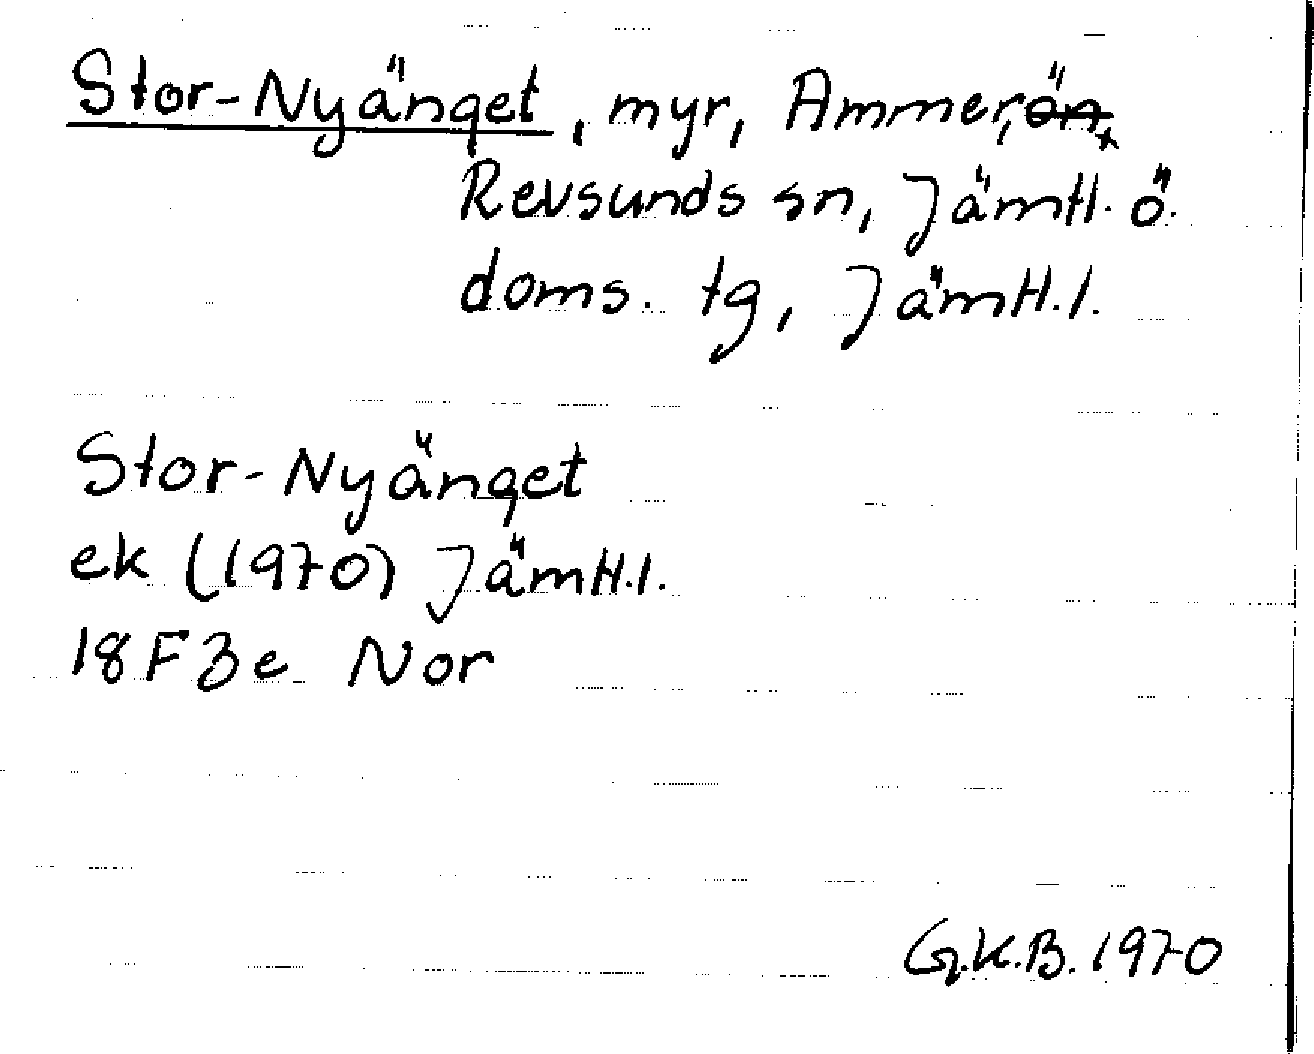 Stor-Nyänget, myr, Ammer, ön,
Revsunds sn, Jämtl. ö.
doms. tg, Jämtl. l.
Stor-Nyänget
ek (1970) Jämtl. l.
18F3e Nor
G.K.B. 1970